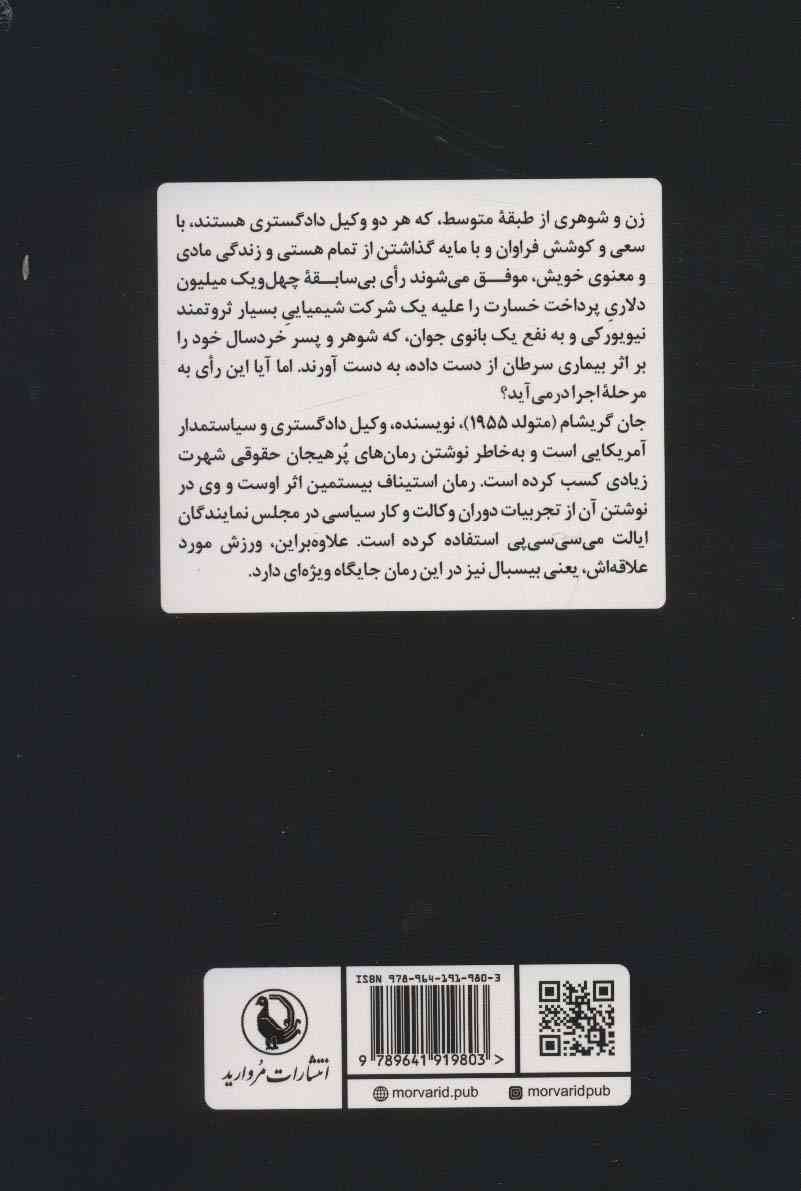 زن و شوهری از طبقهٔ متوسط، که هر دو وکیل دادگستری هستند، با
سعی و کوشش فراوان و با مایه گذاشتن از تمام هستی و زندگی مادی
و معنوی خویش، موفق می‌شوند رأی بی‌سابقهٔ چهل‌ویک میلیون
دلاریِ پرداخت خسارت را علیه یک شرکت شیمیاییِ بسیار ثروتمند
نیویورکی و به نفع یک بانوی جوان، که شوهر و پسر خردسال خود را
بر اثر بیماری سرطان از دست داده، به دست آورند. اما آیا این رأی به
مرحلهٔ اجرا درمی‌آید؟
جان گریشام (متولد ۱۹۵۵)، نویسنده، وکیل دادگستری و سیاستمدار
آمریکایی است و به‌خاطر نوشتن رمان‌های پُرهیجان حقوقی شهرت
زیادی کسب کرده است. رمان استیناف بیستمین اثر اوست و وی در
نوشتن آن از تجربیات دوران وکالت و کار سیاسی در مجلس نمایندگان
ایالت می‌سی‌سی‌پی استفاده کرده است. علاوه‌براین، ورزش مورد
علاقه‌اش، یعنی بیسبال نیز در این رمان جایگاه ویژه‌ای دارد.
ISBN 978-964-191-980-3
9 789641 919803 >
انتشارات مُروارید
morvarid.pub
morvaridpub